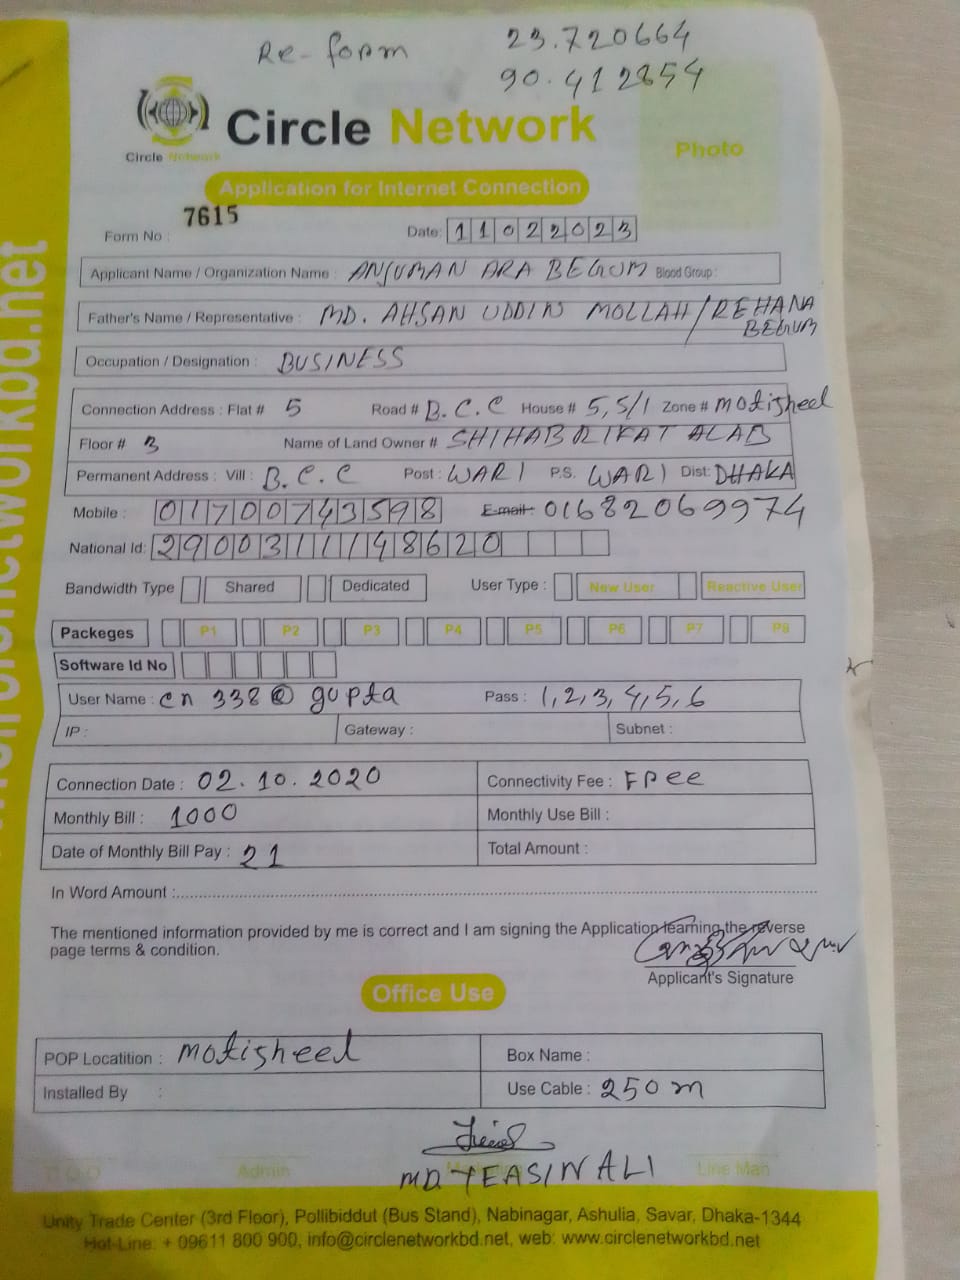 Re-form
23.720664
90.412854
Circle Network
Circle Network
Photo
Application for Internet Connection
Form No : 7615
Date: 11022023
Applicant Name / Organization Name : ANJUMAN ARA BEGUM Blood Group :
Father's Name / Representative : MD. AHSAN UDDIN MOLLAH/REHANA BEGUM
Occupation / Designation : BUSINESS
Connection Address : Flat # 5 Road # B.C.C House # 5,5/1 Zone # Motijheel
Floor # 3 Name of Land Owner # SHIHAB RIFAT ALAB
Permanent Address : Vill : B.C.C Post : WARI P.S. WARI Dist: DHAKA
Mobile : 01700743598 E-mail: 01682069974
National Id: 2900311148620
Bandwidth Type Shared Dedicated User Type : New User Reactive User
Packeges P1 P2 P3 P4 P5 P6 P7 P8
Software Id No
User Name : cn 338@gupta Pass : 1,2,3,4,5,6
IP : Gateway : Subnet :
Connection Date : 02.10.2020 Connectivity Fee : Free
Monthly Bill : 1000 Monthly Use Bill :
Date of Monthly Bill Pay : 21 Total Amount :
In Word Amount :
The mentioned information provided by me is correct and I am signing the Application learning the reverse
page terms & condition.
Applicant's Signature
Office Use
POP Locatition : Motisheel Box Name :
Installed By : Use Cable : 250m
Admin Line Man
MD. YEASIN ALI
Unity Trade Center (3rd Floor), Pollibiddut (Bus Stand), Nabinagar, Ashulia, Savar, Dhaka-1344
Hot-Line: + 09611 800 900, info@circlenetworkbd.net, web: www.circlenetworkbd.net